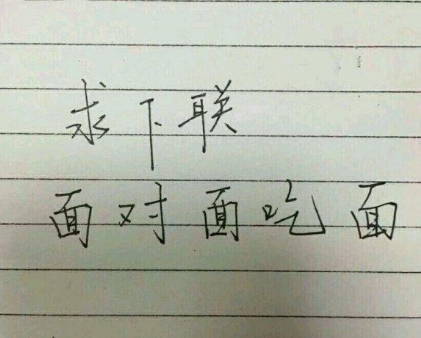 求下联
面对面吃面